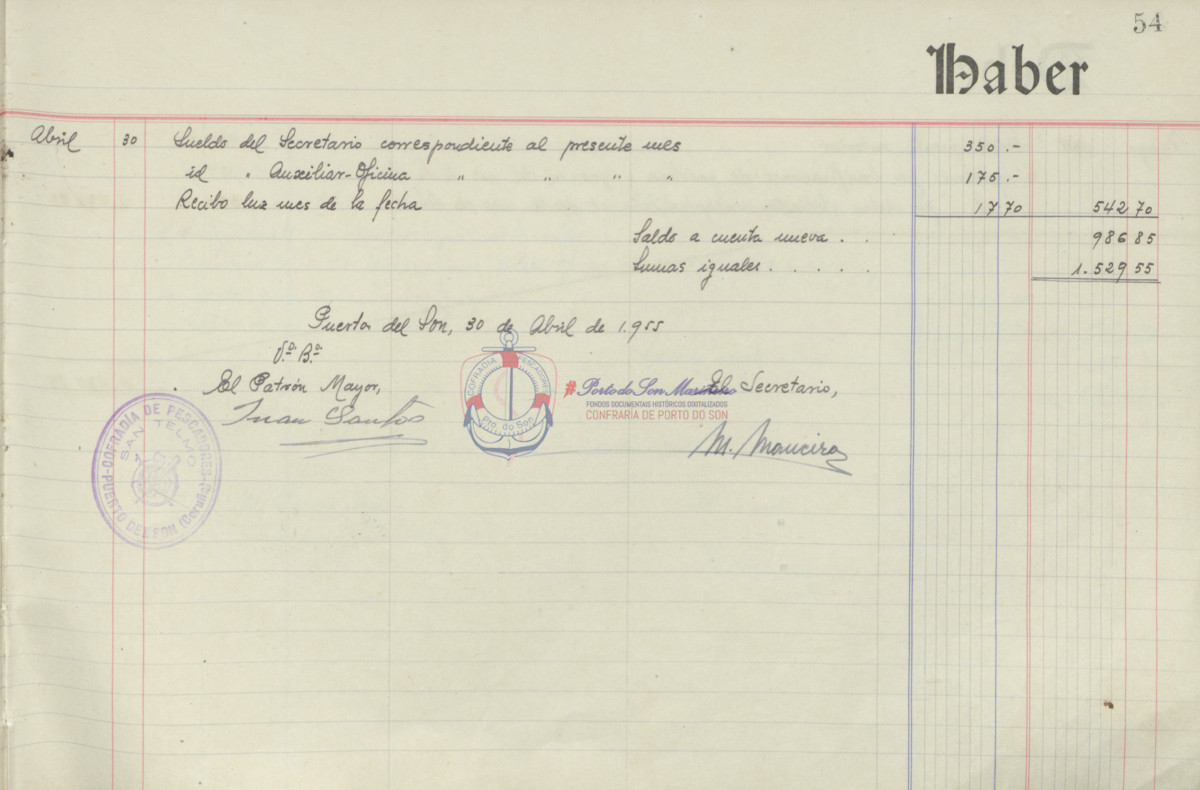 54
Haber
Abril 30 Sueldo del Secretario correspondiente al presente mes 350.-
id " Auxiliar-Oficina " " " " 175.-
Recibo luz mes de la fecha 17 70 542 70
Saldo a cuenta nueva . . 986 85
Sumas iguales . . . . . 1.529 55
Puerto del Son, 30 de Abril de 1.955
Vº. Bº.
El Patrón Mayor, El Secretario,
Juan Santos
M. Maneiro
COFRADÍA DE PESCADORES
PUERTO DEL SON (Coruña)
SAN TELMO
COFRADIA PESCADORES
Pto. do Son
#Porto do Son Mariñeiro
FONDOS DOCUMENTAIS HISTÓRICOS DIXITALIZADOS
CONFRARÍA DE PORTO DO SON